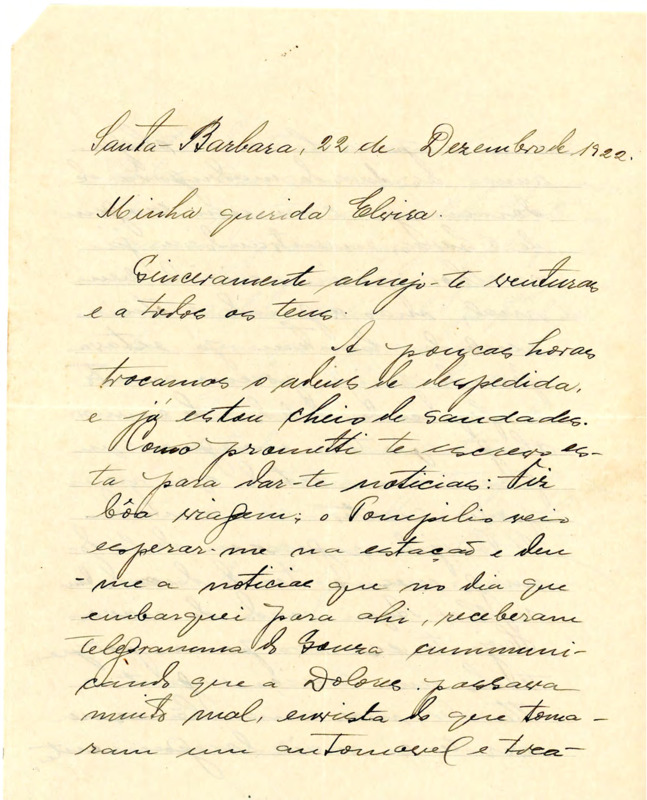 Santa-Barbara, 22 de Dezembro de 1922.
Minha querida Elvira.
Sinceramente almejo-te venturas
e a todos os teus.
A poucas horas
trocamos o adeus de despedida,
e já estou cheio de saudades.
Como prometti te escrevo es-
ta para dar-te noticias: Fiz
bôa viagem; o Pompilio veio
esperar-me na estação e deu
-me a noticia que no dia que
embarquei para ahi, receberam
telegramma do Souza cummuni-
cando que a Dolores passava
muito mal, envista do que toma-
ram um automovel e toca-